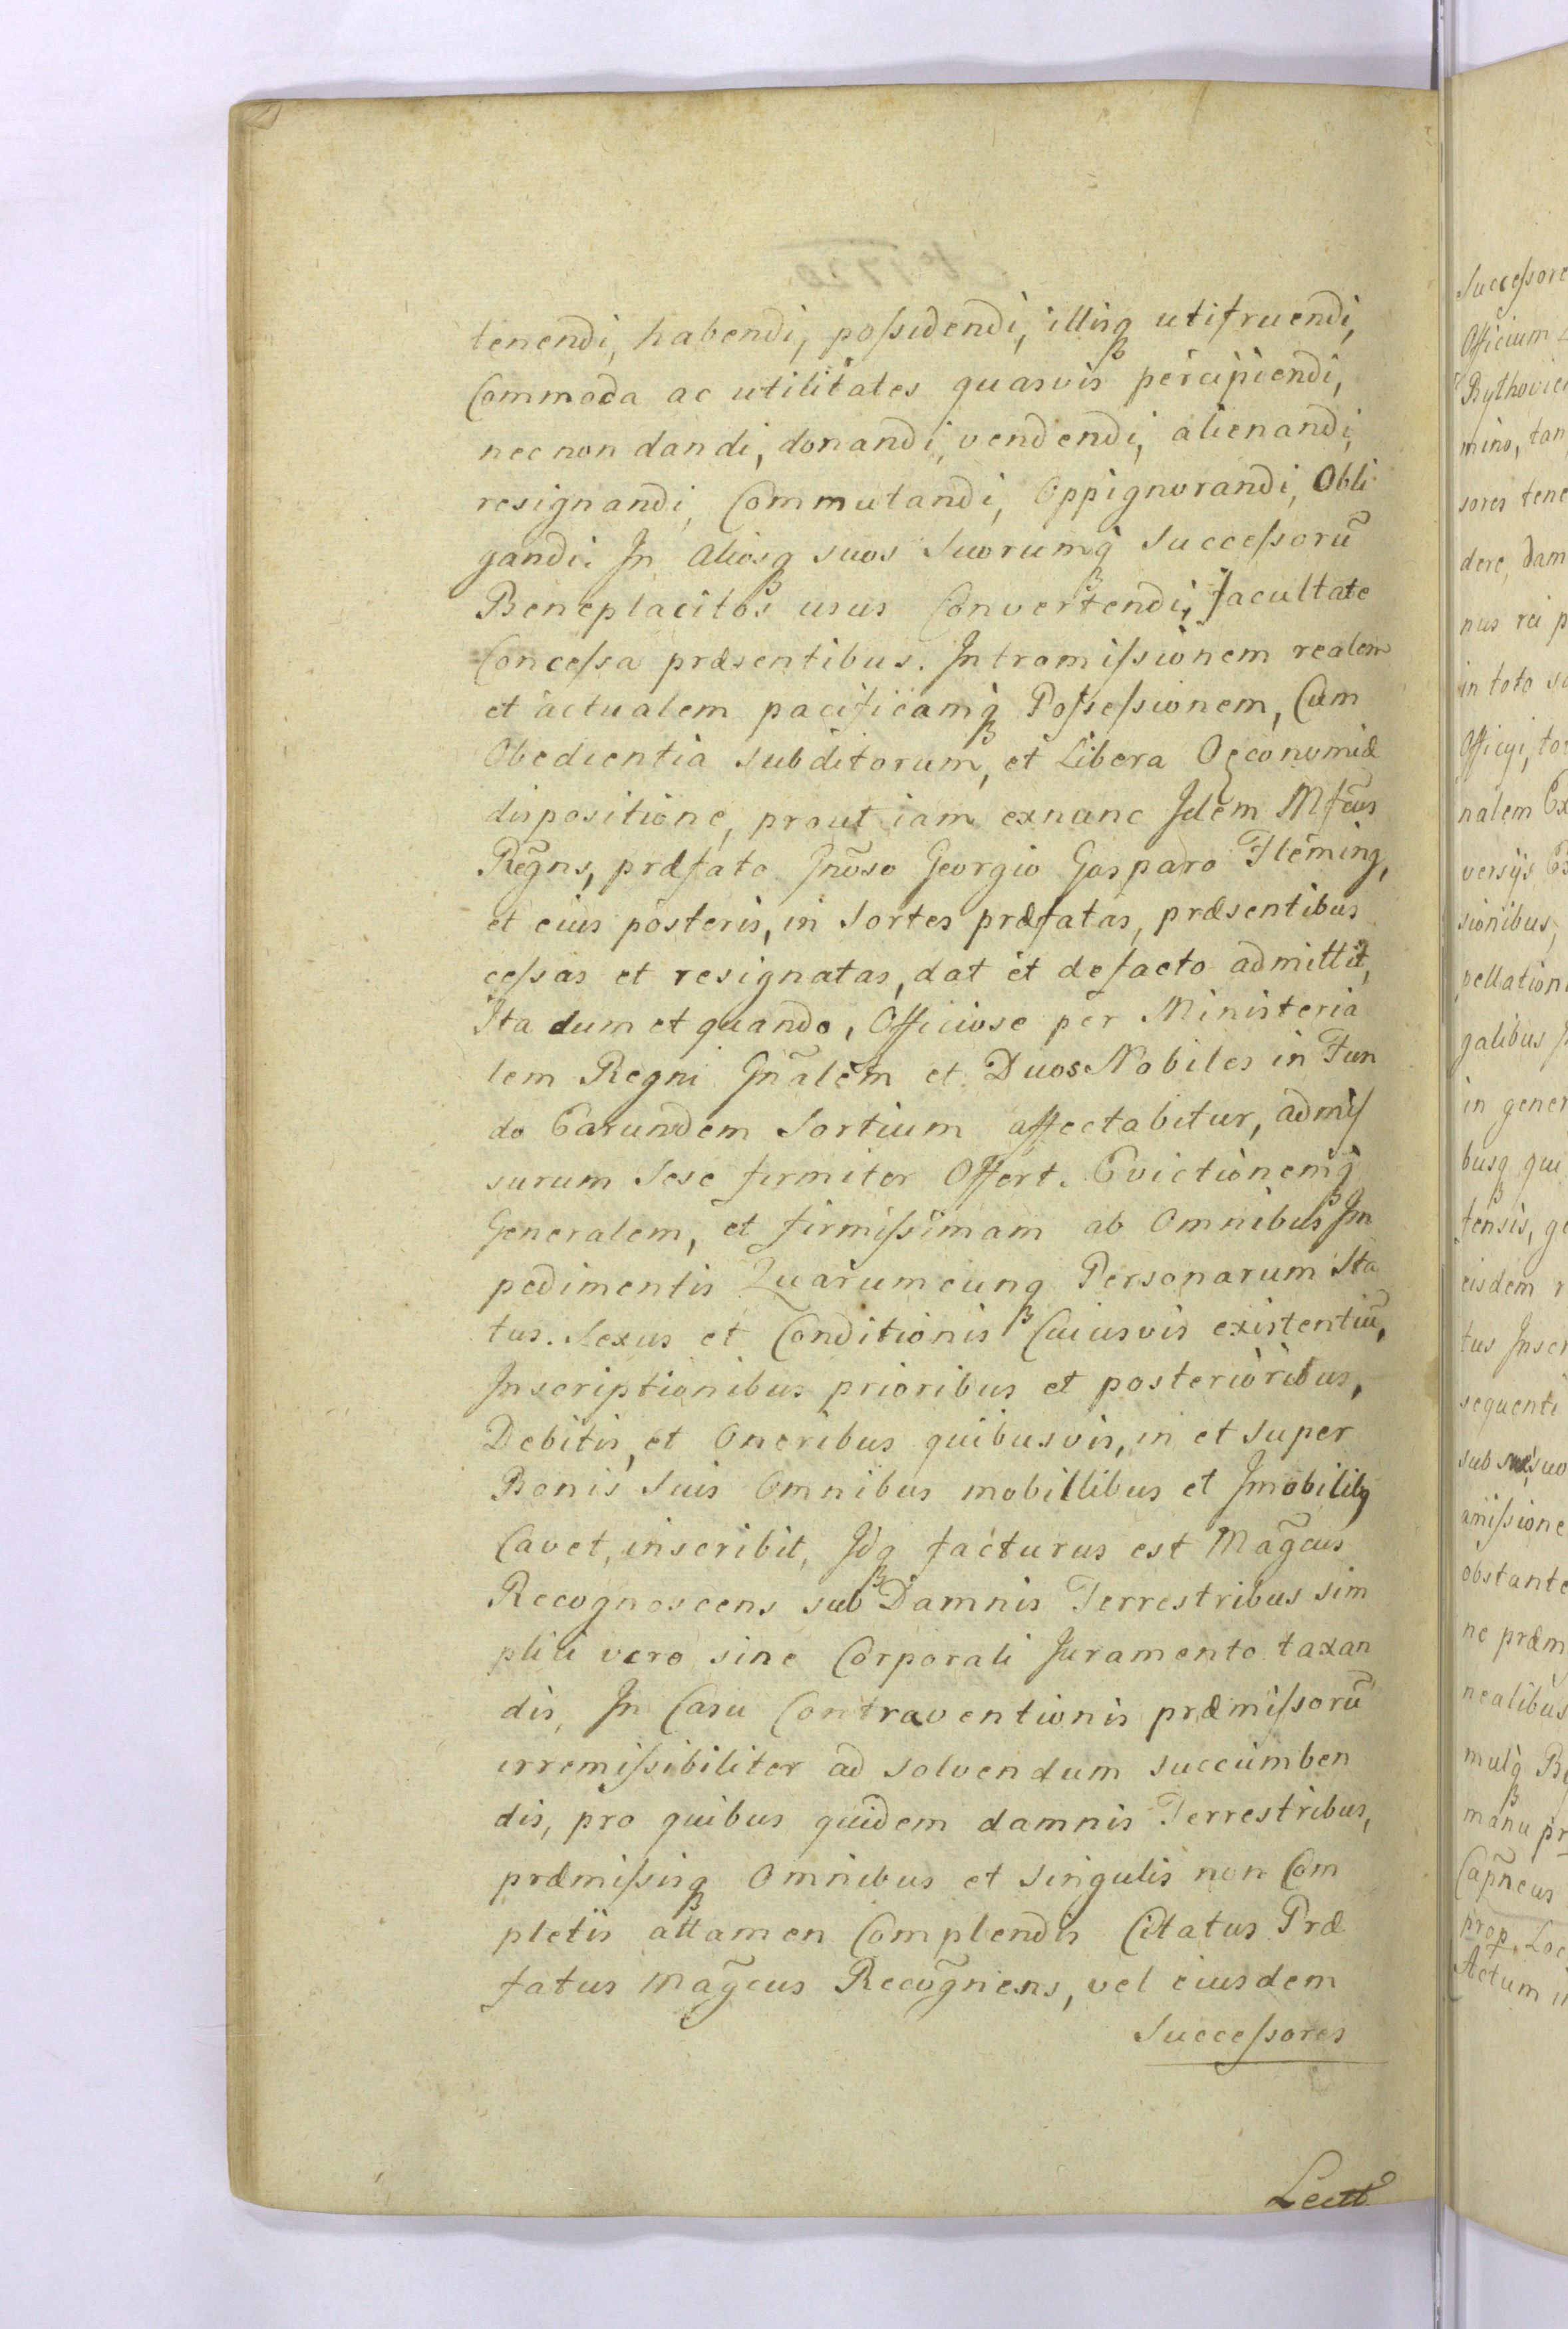 tenendi, habendi, poſsidendi, illisq utifruendi,
Commoda ac utilitates quasvis percipiendi,
nec non dandi, donandi, vendendi, alienandi,
resignandi, Commutandi, Oppignorandi, Obli
gandi. In Aliosq suos Suorumq Succeſsorũ
Beneplacitos usus Convertendi, facultate
Conceſsa præsentibus. Intromiſsionem realem
et actualem pacificamq Poſseſsionem, Cum
Obedientia Subditorum, et Libera Oeconomiæ
dispositione, prout iam exnunc Idem Mfcũs
Regñs, præfato Gnõso Georgio Gasparo Fleming,
et eius posteris, in Sortes præfatas, præsentibus
ceſsas et resignatas, dat et defacto admittit,
Ita dum et quando, Officiose per Ministeria
lem Regni Gñalem et Duos Nobiles in Fun
do Earundem Sortium affectabitur, admiſ
surum Sese firmiter Offert. Evictionemq
Generalem, et firmiſsimam ab Omnibus Im
pedimentis Quarumcunq Personarum Sta
tus. Sexus et Conditionis Cuiusvis existentiũ,
Inscriptionibus prioribus et posterioribus,
Debitis, et Oneribus quibusvis, in et Super
Bonis Suis Omnibus mobillibus et Imobilibq
Cavet, inscribit, Idq facturus est Magcũs
Recognoscens sub Damnis Terrestribus sim
plici vero sine Corporali Juramento taxan
dis, In Casu Contraventionis præmiſsorũ
irremiſsibiliter ad solvendum succumben
dis, pro quibus quidem damnis Terrestribus,
præmiſsisq Omnibus et singulis non Com
pletis attamen Complendis Citatus Præ
fatus Magcũs Recogñens, vel eiusdem
Succeſsores
Lectt
Succeſsore
Officium
mino, tan
sores tene
dere, dam
nus rei p
in toto
Officij, to
nalem Ex
versijs
sionibus,
pellation
galibus
in gener
busq qui
tensis, ge
eisdem r
tus Inscr
sequenti
sub
amiſsione
obstante
ne præm
nealibus
mulq
manu pr
Capñeus
prop. Loc
Actum i